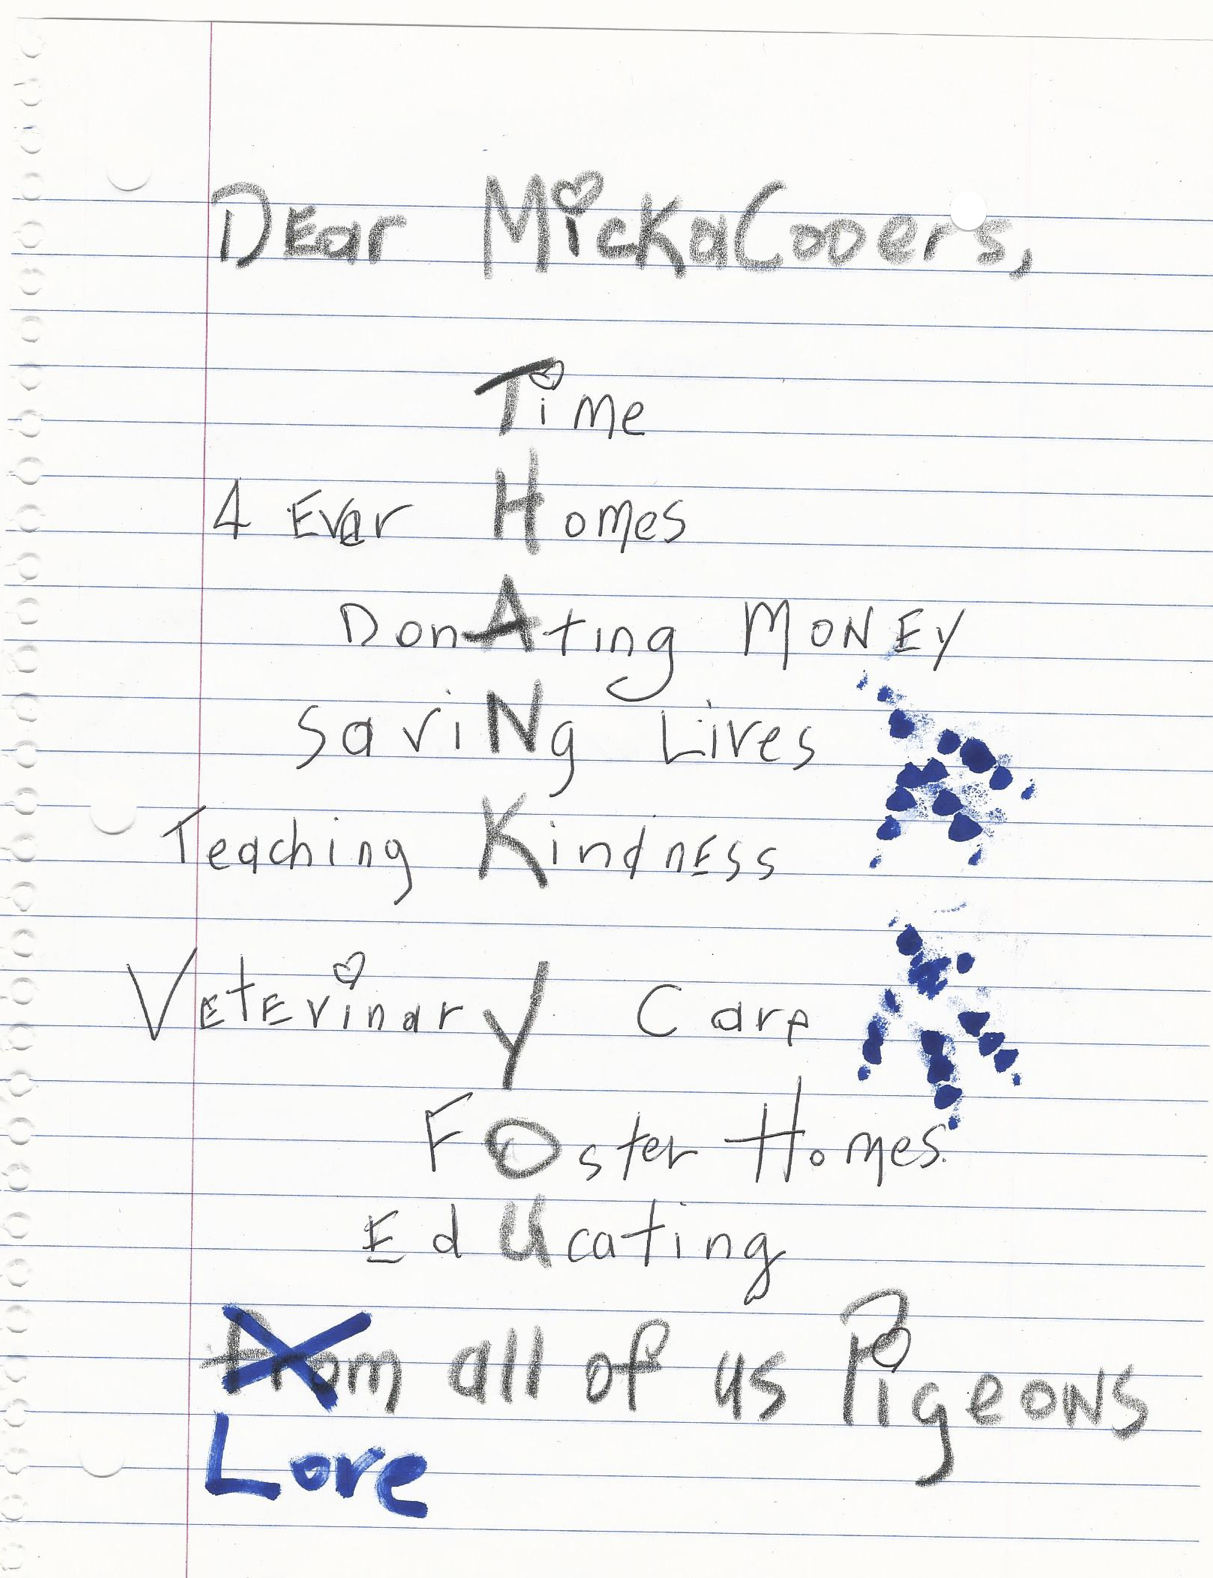 Dear MickaCooers,
Time
4 Ever Homes
DonAting MONEY
SaviNg Lives
Teaching KindnESS
VEtErinary Care
FOster Homes
EdUcating
From all of us PigeONS
Love